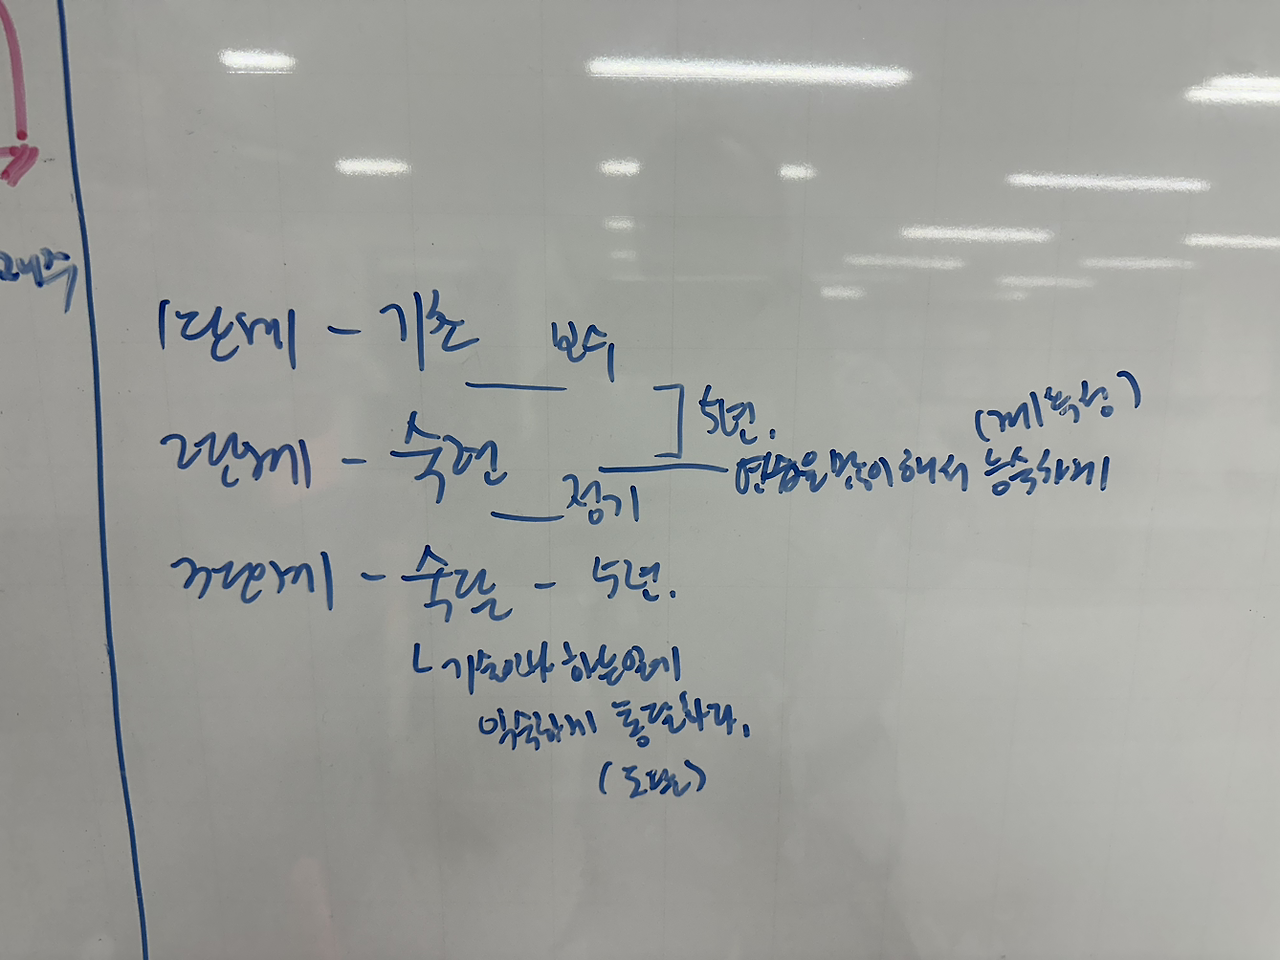 1단계 - 기초 보수
5년.
2단계 - 숙련
연습을 많이 해서 능숙하게
정기
3단계 - 숙달 - 5년.
기술이나 하는 일에
익숙하게 통달하다.